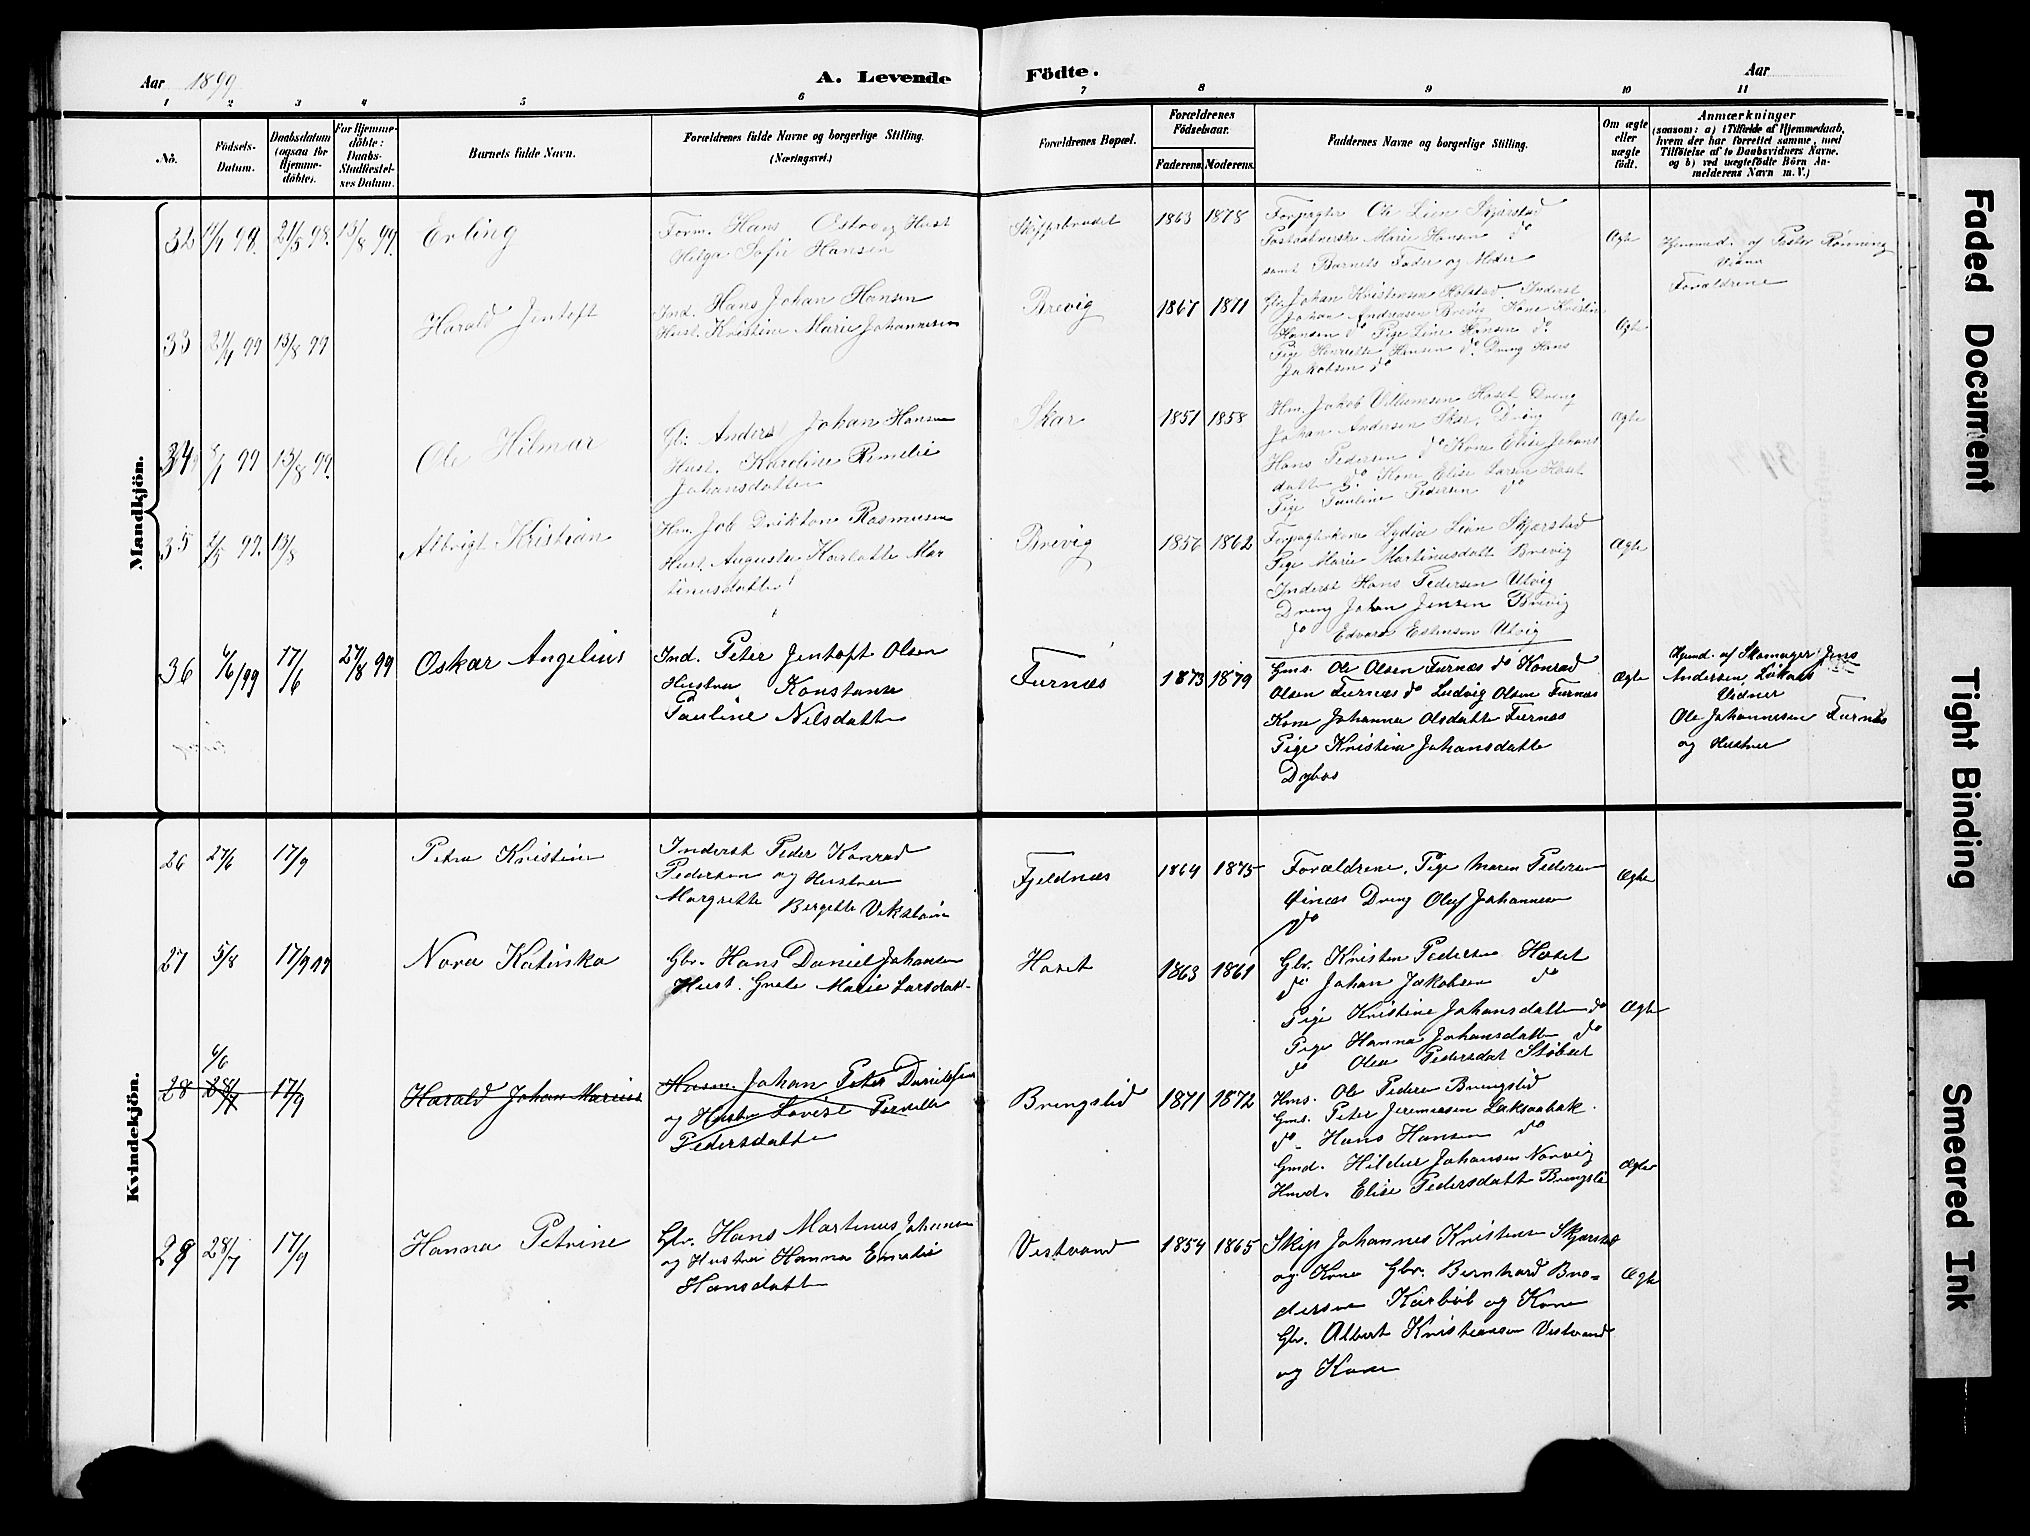 Aar 1899
A. Levende
Födte.
Aar
1 2 3 4 5 6 7 8 9 10 11
No.
Födsels-
Datum.
Daabsdatum
(ogsaa for
Hjemme-
döbte).
For Hjemme-
döbte:
Daabs-
Stadfæstel-
ses Datum.
Barnets fulde Navn.
Forældrenes fulde Navne og borgerlige Stilling.
(Næringsvei.)
Forældrenes Bopæl.
Forældrenes
Födselsaar.
Faderens. Moderens.
Faddernes Navne og borgerlige Stilling.
Om ægte
eller
uægte
födt.
Anmærkninger
(saasom: a) i Tilfælde af Hjemmedaab,
hvem der har forrettet samme, med
Tilföielse af to Daabsvidners Navne,
og b) ved uægtefödte Börn An-
melderens Navn m. V.)
Mandkjön.
32
21/5 98.
13/8 99.
Erling
Form. Hans
Hust
Helga Sofie Hansen
1863 1878
Forpagter Ole Lien Skjærstad
Marie Hansen do
samt Barnets Fader og Moder
Ægte
Hjemmed. af Pastor Rønning
Vidner
Forældrene
33
13/8 99
Harald Jentoft
Ind. Hans Johan Hansen
Hust. Kristine Marie Johannesen
Brevig
1867 1871
Johan Kristensen
Inderst
Johan Andreasen Brevig, Kone Kristine
Hansen do Pige Line Hansen do
Pige Henriette Hansen do Dreng Hans
Jakobsen do
Ægte
34
13/8 99.
Ole Hilmar
Anders Johan Hansen
Hust. Karoline
Johansdatter
Skar
1851 1858
Hm. Jakob Villumsen Hoset Dreng
Johan Andersen Skar, Dreng
Hans Pedersen do Kone Elise Johans
datter do Kone Elise Larsen Hoset
Pige Pauline Pedersen do
Ægte
35
2/5 99. 13/8
Albrigt Kristian
Hm. Job Rasmusen
Hust. Augusta Mar
tinusdatter
Brevig
1856 1862
Forpagterkone Lydia Lien Skjærstad
Pige Marie Martinusdatt Brevig
Inderst Hans Pedersen Utvig
Dreng Johan Jensen Brevig
do Edvard Utvig
Ægte
36
17/6
27/8 99
Oskar Angelius
Ind. Peter Jentoft Olsen
Hustru Konstanse
Pauline Nilsdatter
Furnæs
1873 1879
Gms. Ole Olsen Furnæs do Konrad
Olsen Furnæs do Ludvig Olsen Furnæs
Kone Johanna Olsdatter Furnæs
Pige Kristine Johansdatter
Ægte
Hjemd. af Skomager Jens
Andersen,
Vidner
Ole Johannesen Furnæs
og Hustru
Kvindekjön.
26
27/6
17/9
Petra Kristine
Inderst Peder Konrad
Pedersen og Hustru
Margrethe Bergette
Fjeldnæs
1864 1875
Forældrene, Pige Maren Pedersen
Dreng Oluf Johannesen
do
Ægte
27
5/8
17/9 99
Nora Katinka
Gbr. Hans Daniel Johansen
Hust. Grete Marie Larsdatt-
Hoset
1863 1861
Gbr. Kristen Pedersen Hoset
do Johan Jakobsen do
Pige Kristine Johansdatter do
Pige Hanna Johansdatter do
do Olea Pedersdat Støbset
Ægte
6/6
28
28/7
17/9
Harald Johan Marius
Husm. Johan Peter Danielsen
og Hustr Lovise Pernille
Pedersdatter
Bringslid
1871 1872
Hms. Ole Pedersen Bringslid
Gms. Peter Jeremiasen Laksaabak.
do - Hans Hansen do
Gmd. Hildur Johansen Norvig
Hmd. Elise Pedersdatt Bringsli
Ægte
29
28/7
17/9
Hanna Petrine
Gbr. Hans Martinus Johansen
og Hustru Hanna Emelie
Hansdatter
Vestvand
1854 1865
Skip Johannes Kristensen Skjærstad
og Kone Gbr. Bernhard Bro-
dersen Karbøl og Kone
Gbr. Albert Kristiansen Vestvand
og Kone
Ægte
Faded Document
Tight Binding
Smeared Ink